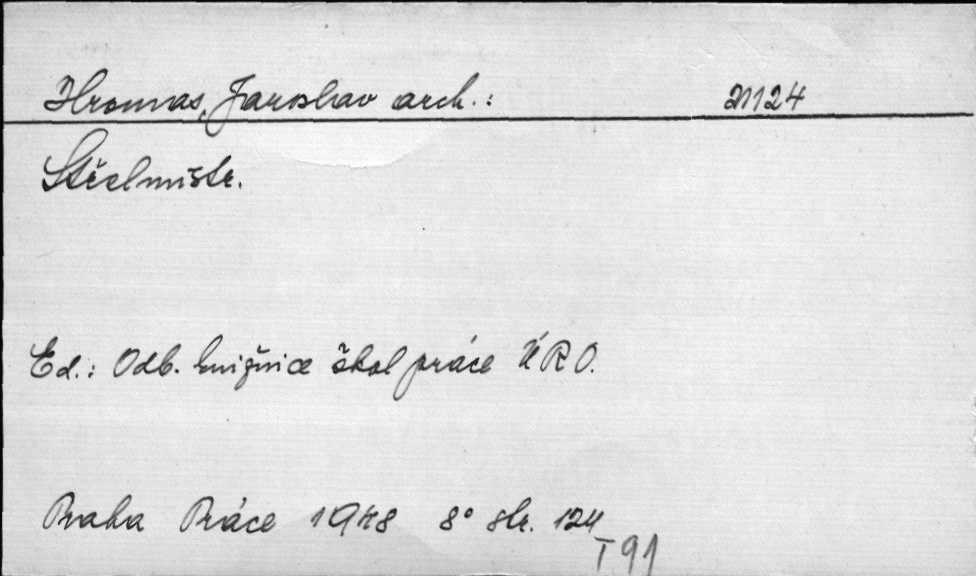 Hromas, Jaroslav arch.: 21124
Střelmistr.
Ed.: Odb. knižnice škol práce ÚRO.
Praha Práce 1948 8° str. 124
T 91